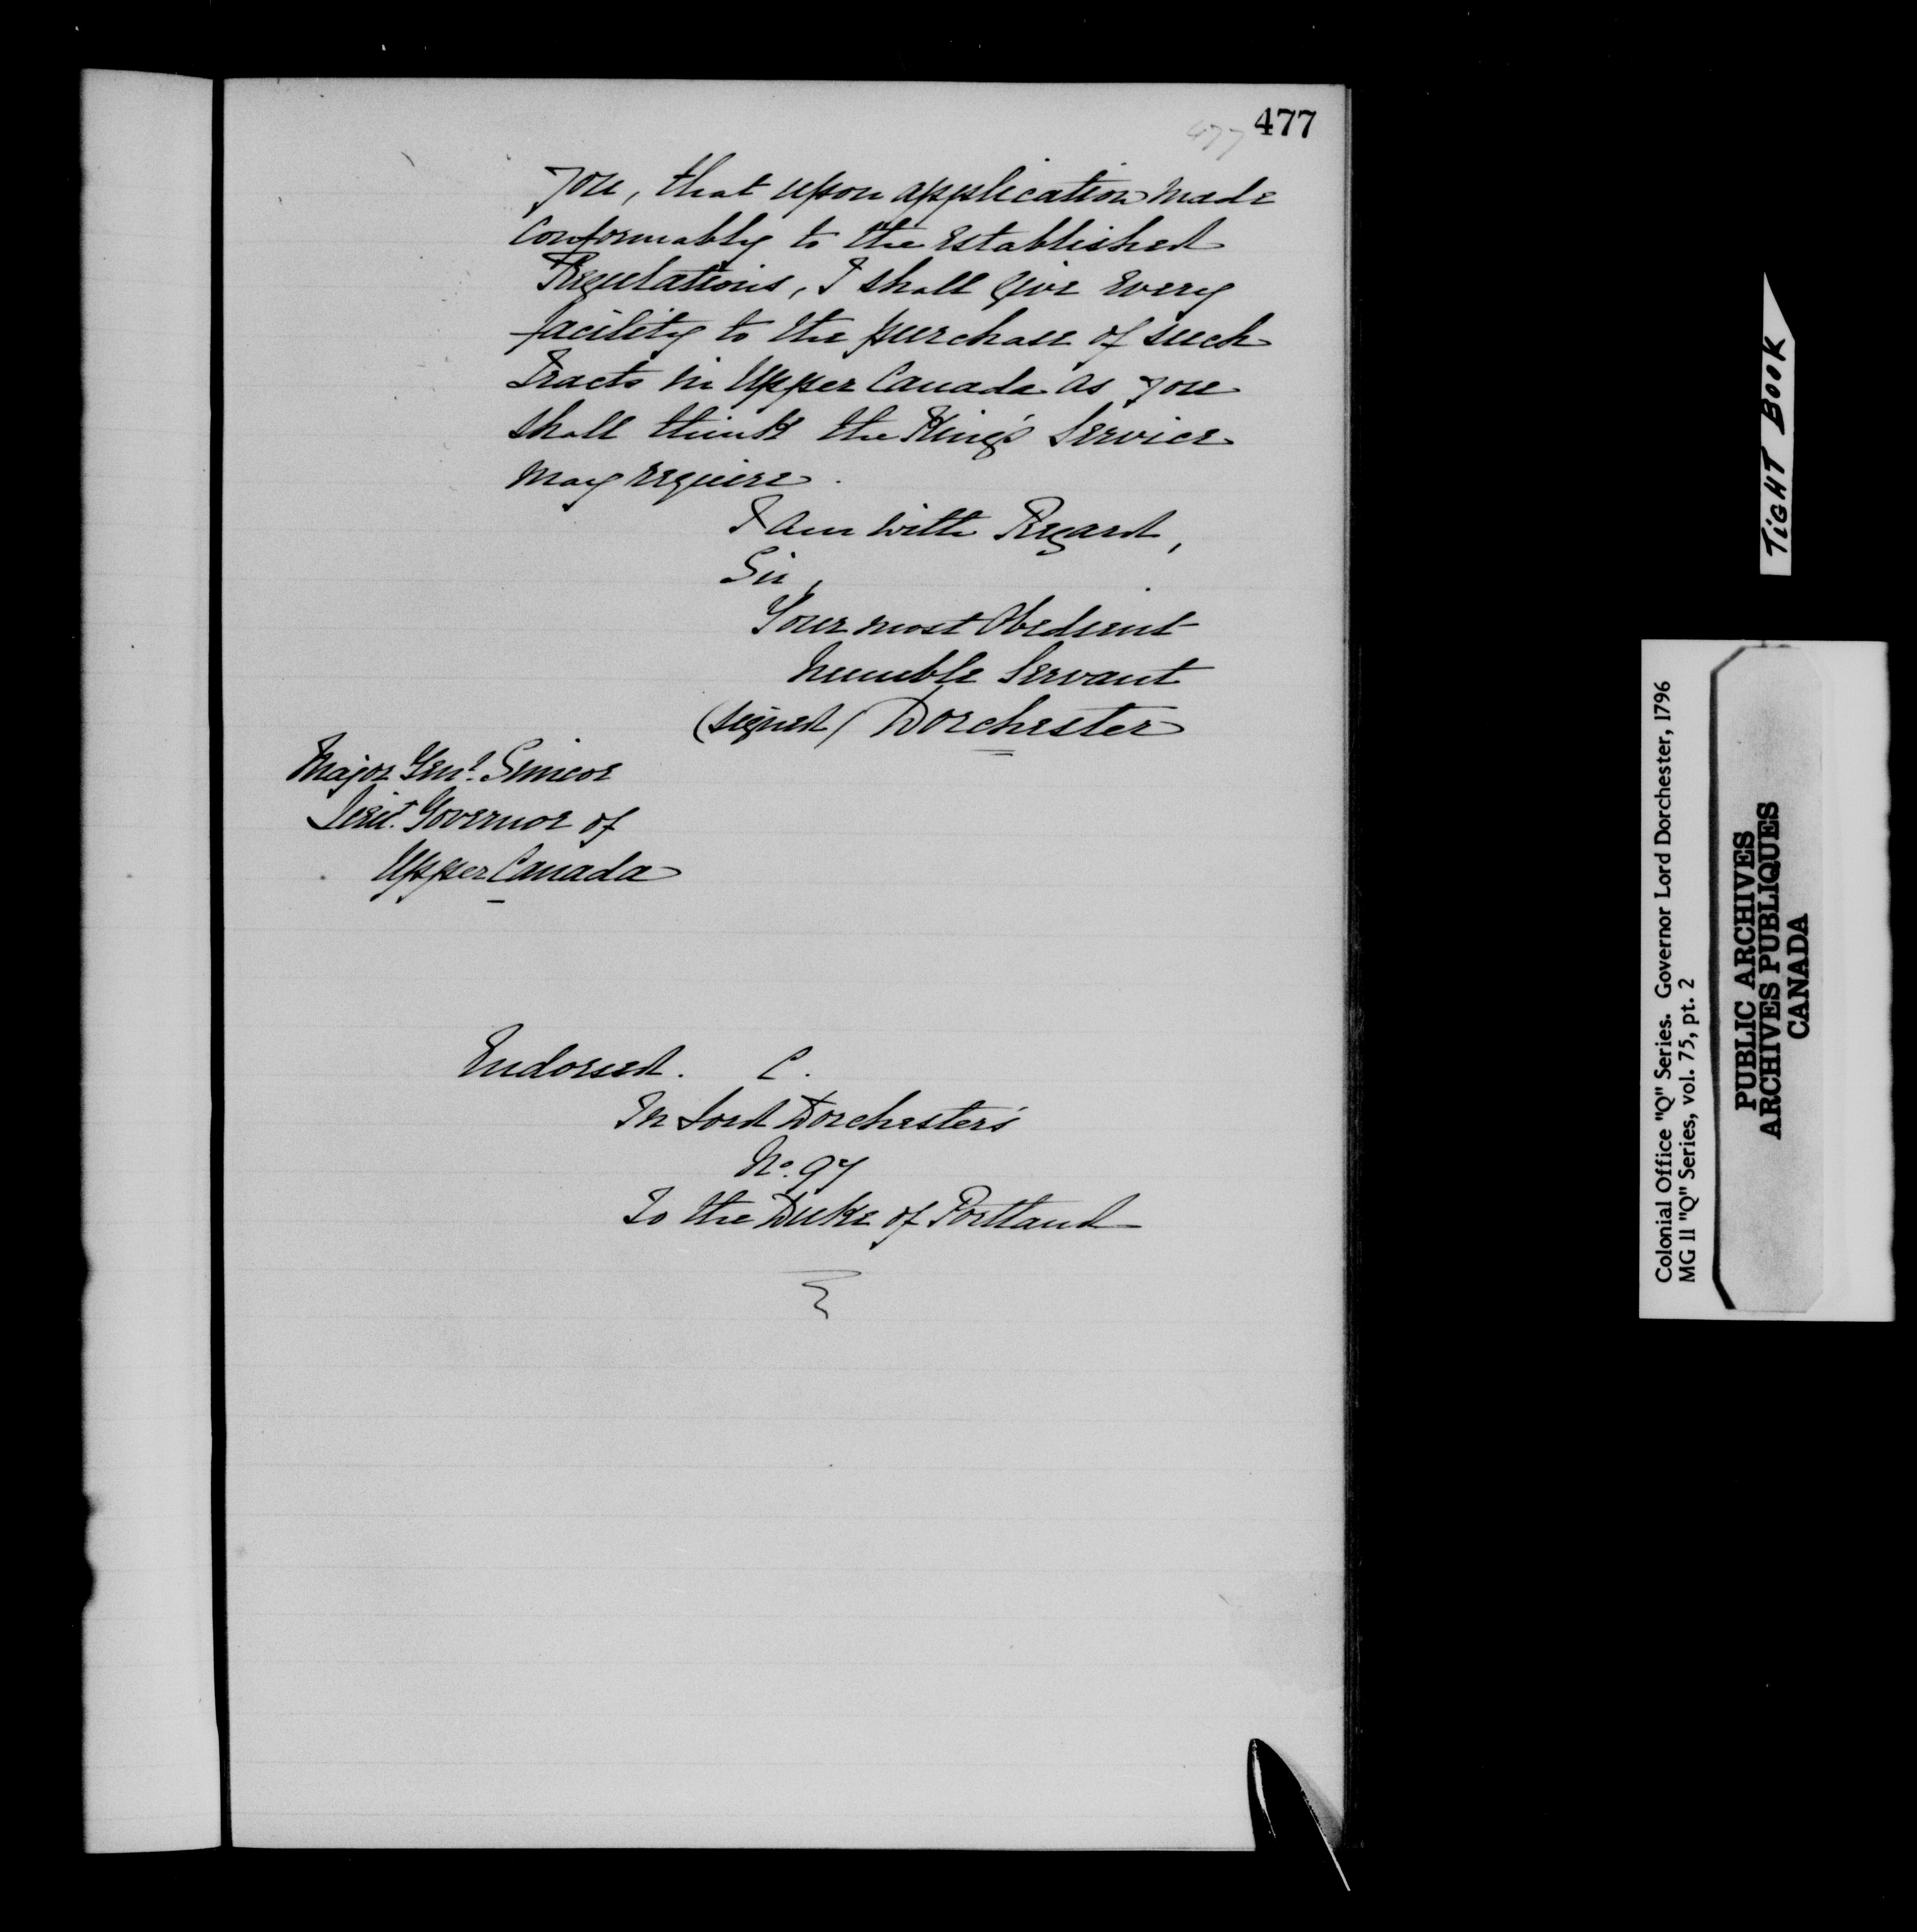 477
477
you, that upon application made
conformably to the established
Regulations, I shall give every
facility to the purchase of such
Tracts in Upper Canada as you
shall think the King's Service
may require.
I am with Regard,
Sir,
Your most Obedient
humble Servant
(signed) Dorchester
Major Genl. Simcoe
Lieut. Governor of
Upper Canada
Endorsed. C.
In Lord Dorchester's
No. 97
To the Duke of Portland
TIGHT BOOK
Colonial Office "Q" Series. Governor Lord Dorchester, 1796
MG 11 "Q" Series, vol. 75, pt. 2
PUBLIC ARCHIVES
ARCHIVES PUBLIQUES
CANADA